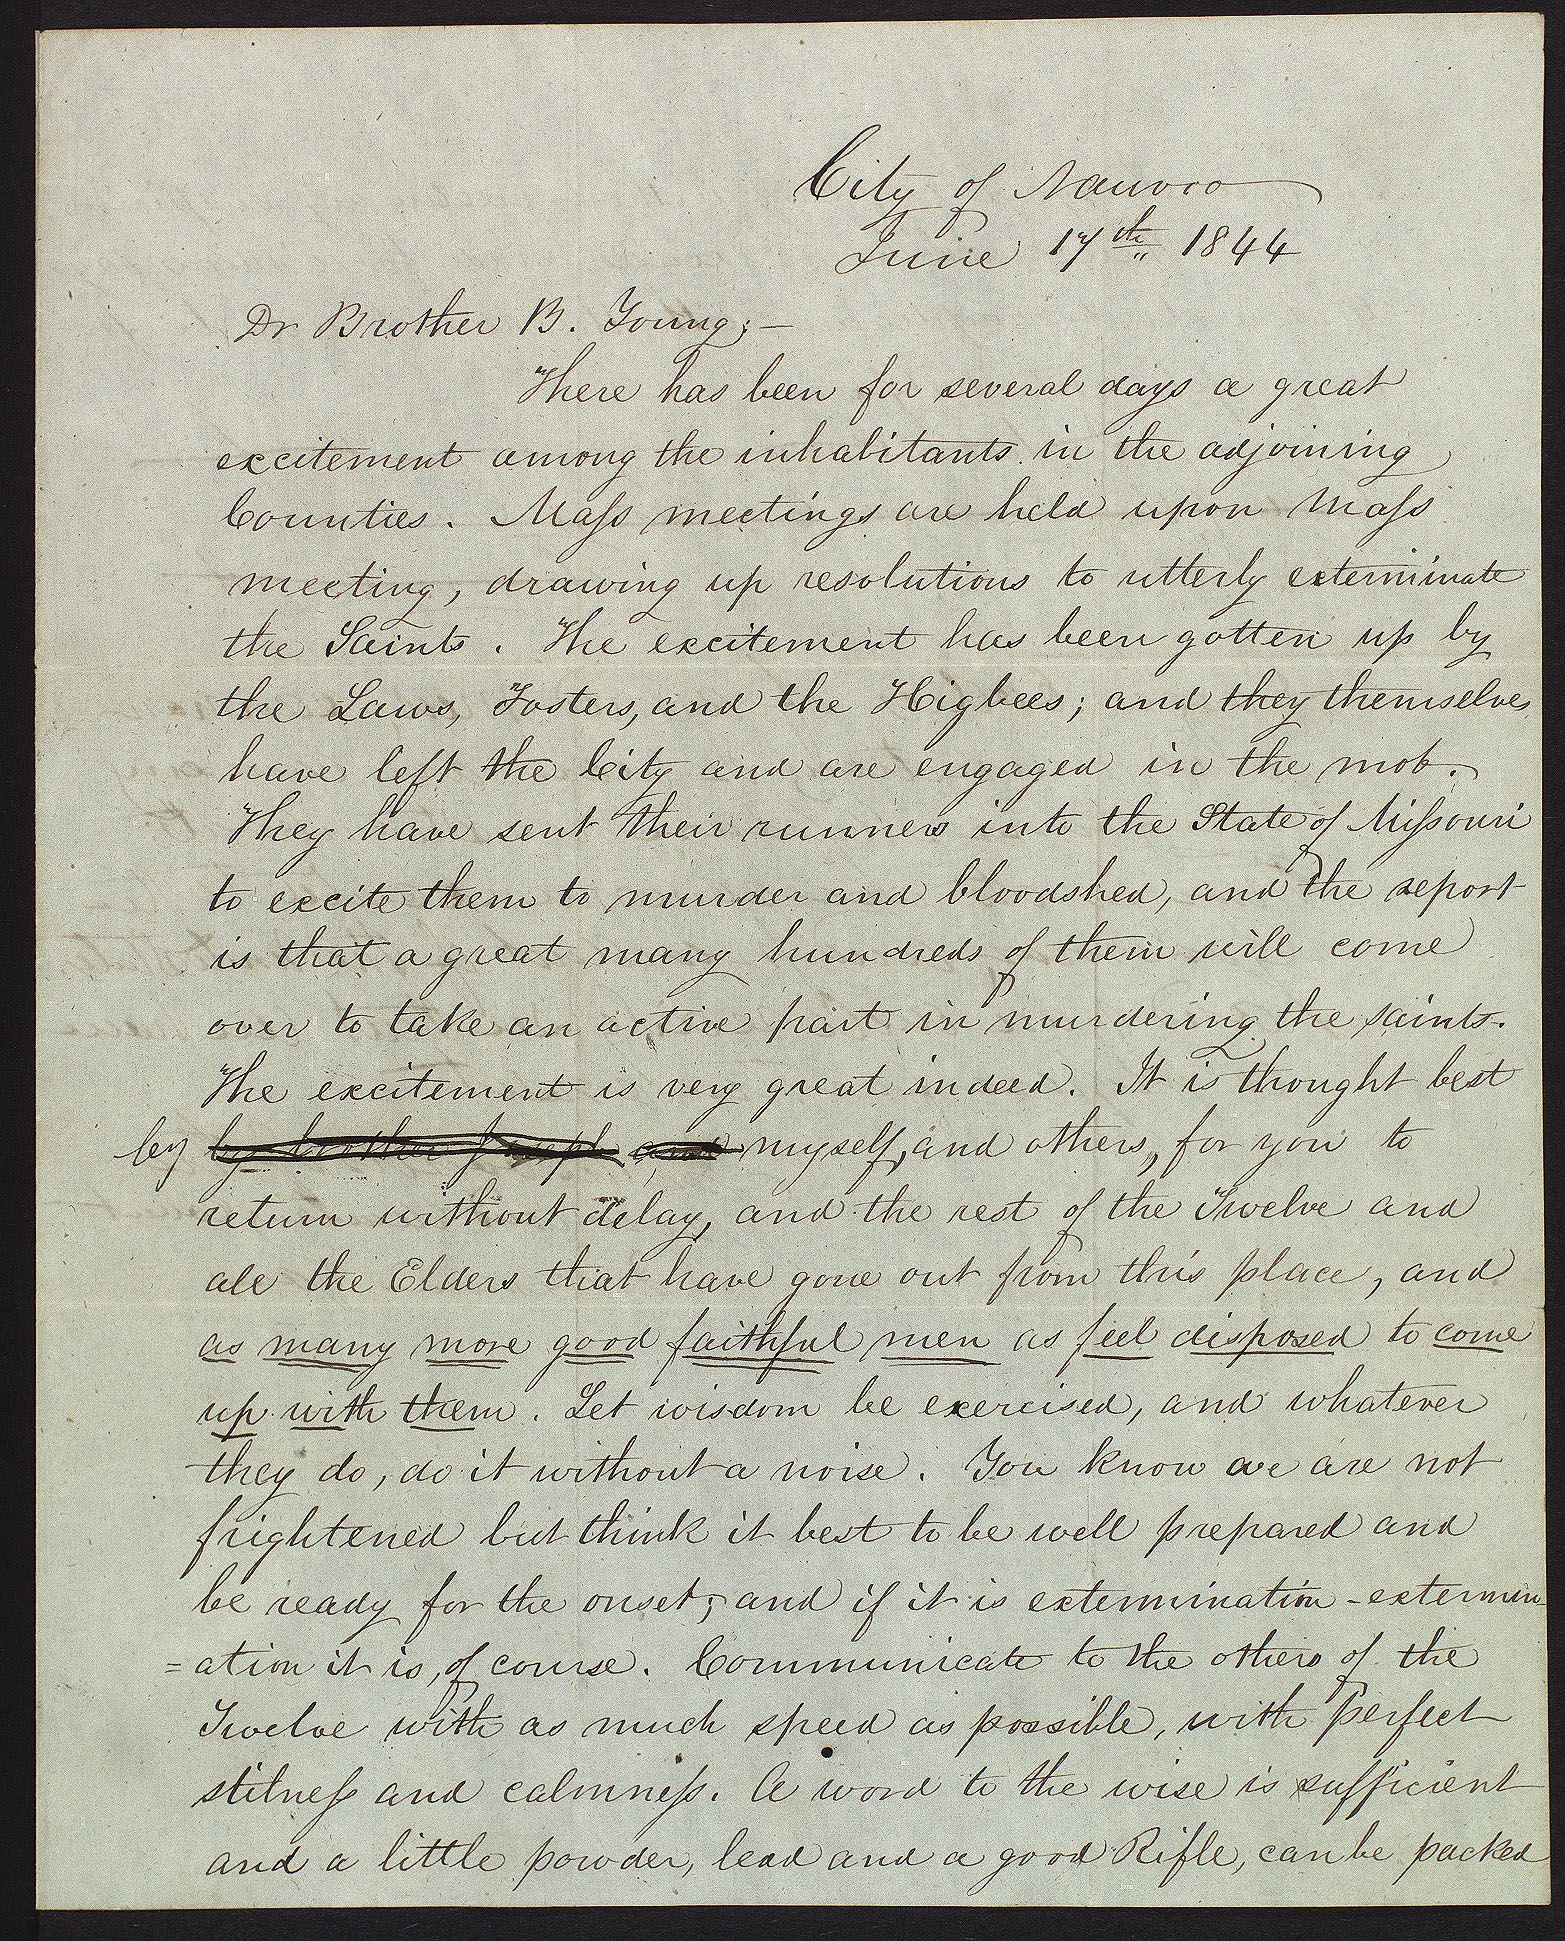 City of Nauvoo
June 17th 1844
Dr Brother B. Young;—
There has been for several days a great
excitement among the inhabitants in the adjoining
Counties. Mass meetings are held upon Mass
meeting, drawing up resolutions to utterly exterminate
the Saints. The excitement has been gotten up by
the Laws, Fosters, and the Higbees; and they themselves
have left the City and are engaged in the mob.
They have sent their runners into the State of Missouri
to excite them to murder and bloodshed, and the report
is that a great many hundreds of them will come
over to take an active part in murdering the saints.
The excitement is very great indeed. It is thought best
by by brother Joseph and myself, and others, for you to
return without delay, and the rest of the Twelve and
all the Elders that have gone out from this place, and
as many more good faithful men as feel disposed to come
up with them. Let wisdom be exercised, and whatever
they do, do it without a noise. You know we are not
frightened but think it best to be well prepared and
be ready for the onset; and if it is extermination - extermin
=ation it is, of course. Communicate to the others of the
Twelve with as much speed as possible, with perfect
stilness and calmness. A word to the wise is sufficient
and a little powder, lead and a good Rifle, can be packed